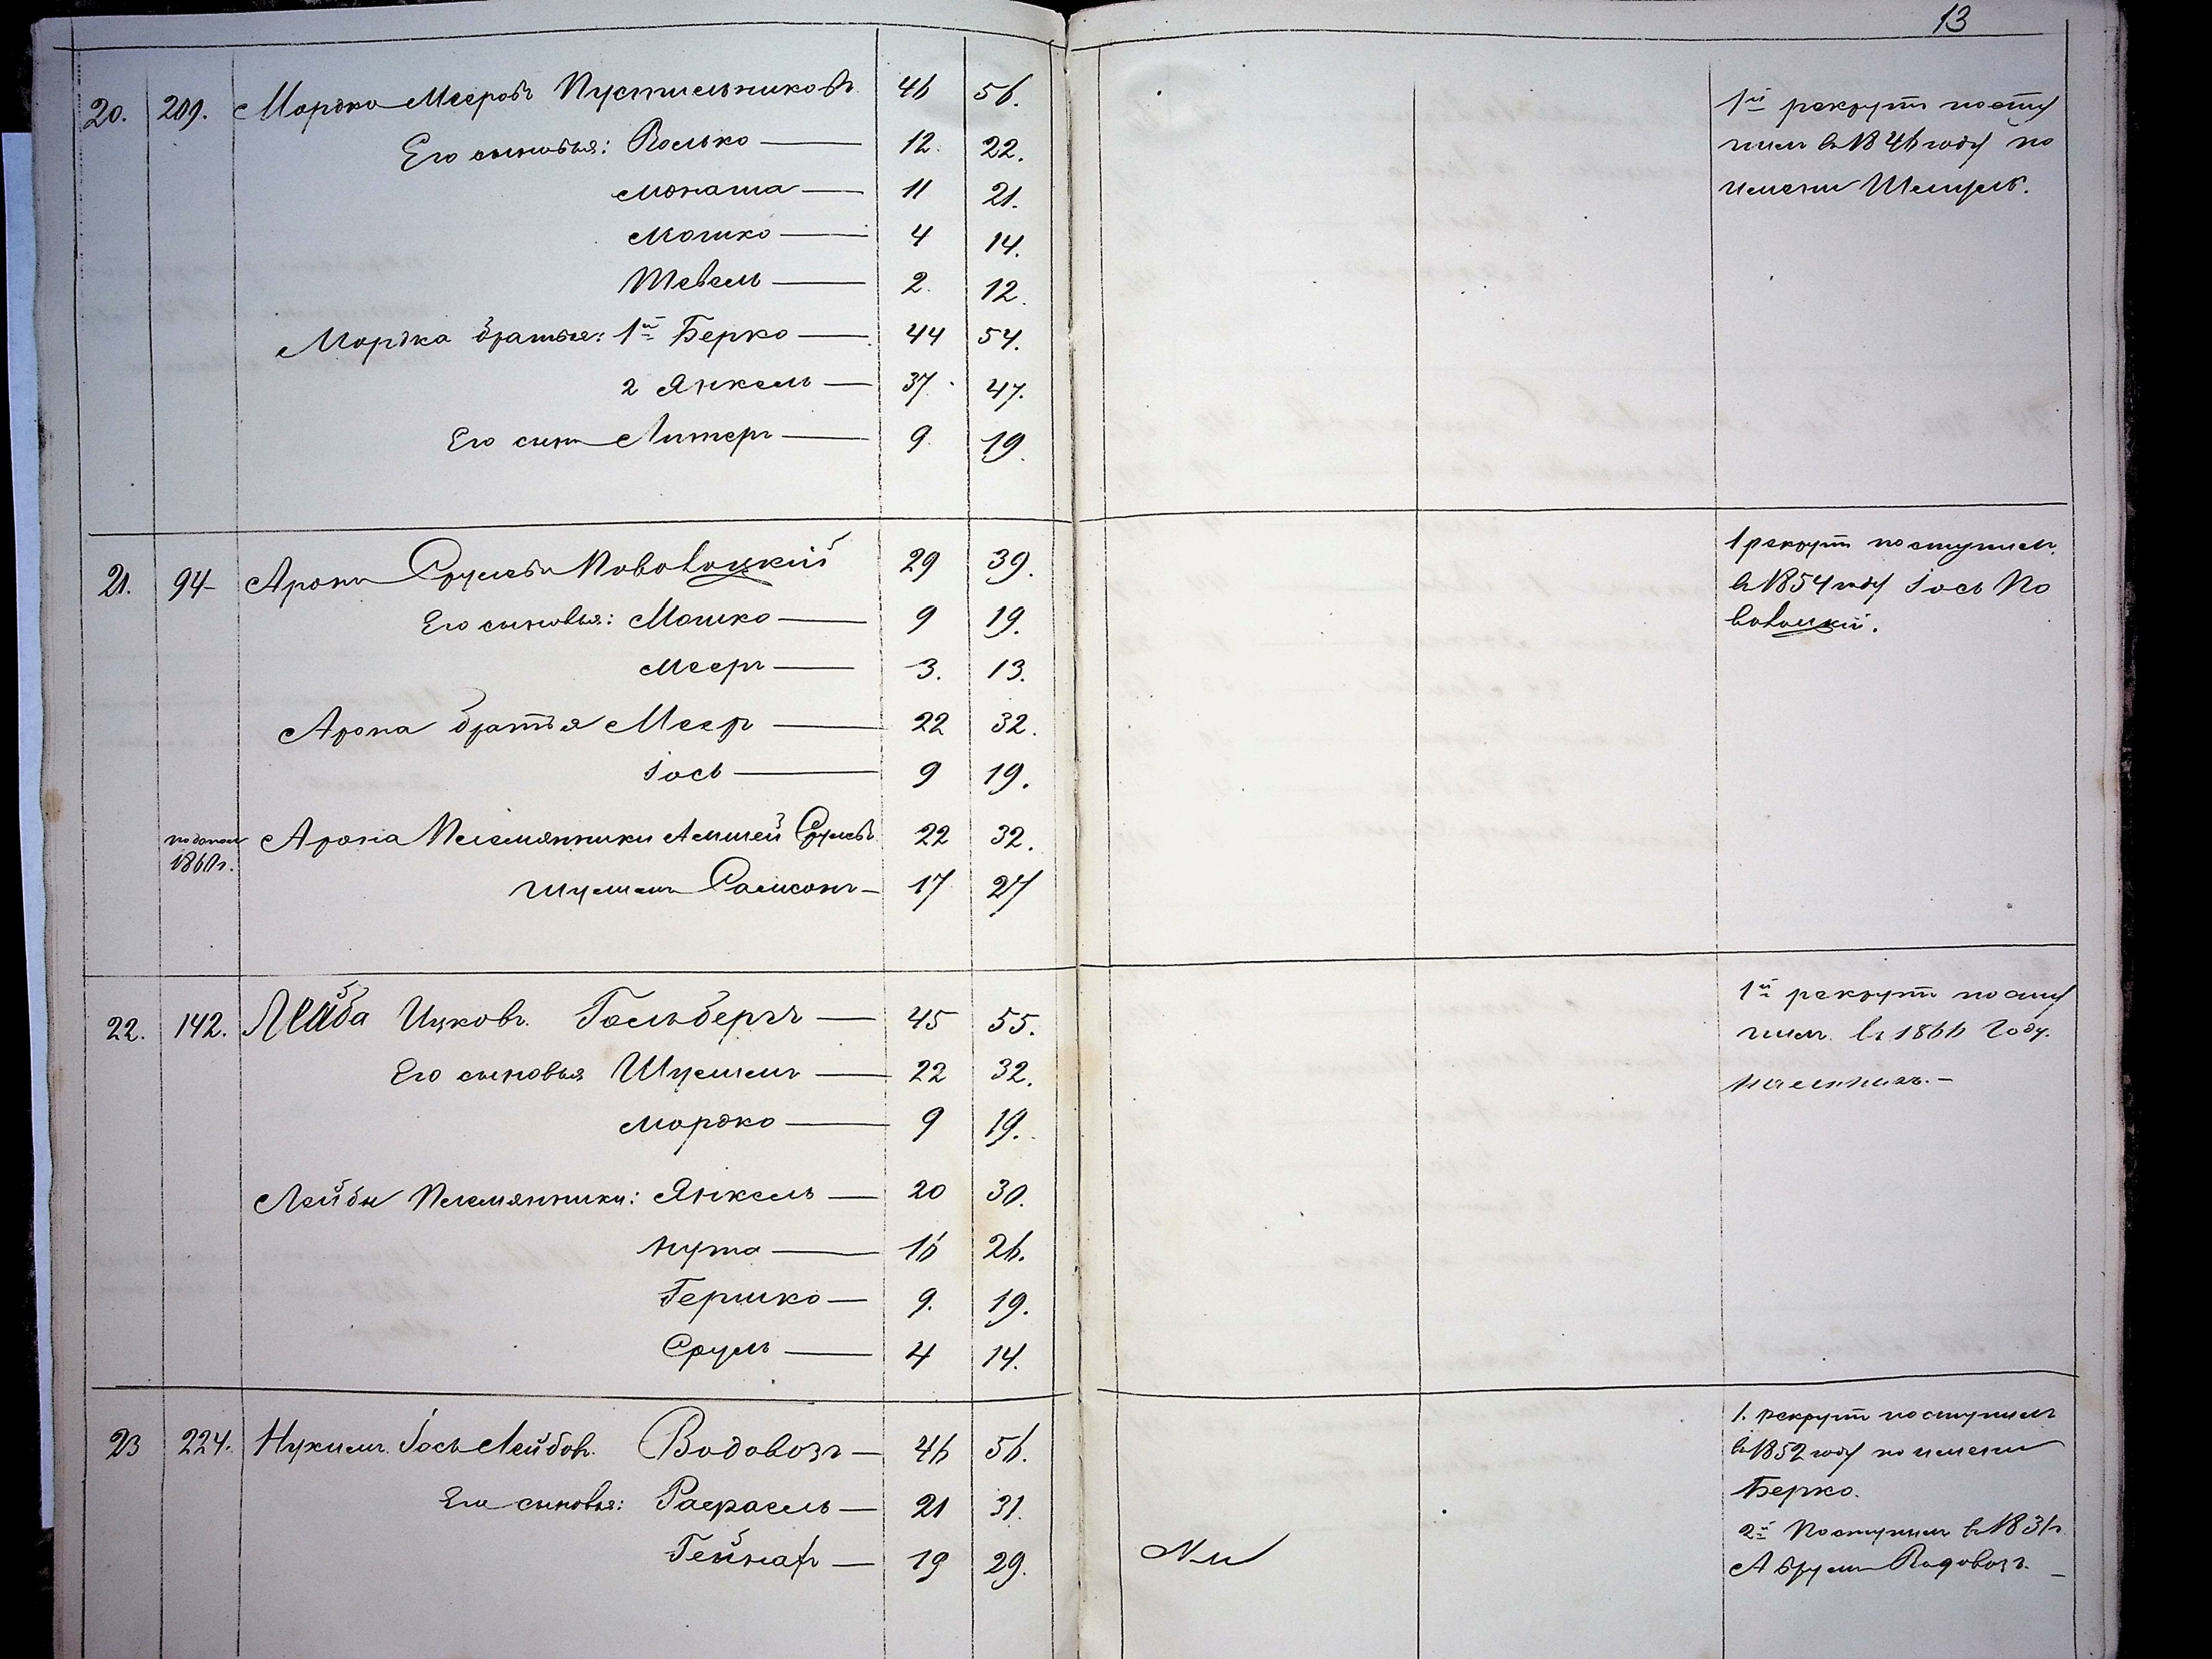 13
20. 209. Мордко Мееровъ Пустильниковъ 46 56.
Его сыновья: Волько — 12 22.
Монаша — 11 21.
Мошко — 4 14.
Тевель — 2. 12.
Мордка братья: 1й Берко — 44 54.
2 Янкель — 37 47.
Его сынъ Литеръ — 9. 19.
1й рекрутъ посту
пилъ въ 1846 году по
имени Шмуль.
21. 94 Аронъ Срулевъ Поволоцкій 29 39.
Его сыновья: Мошко — 9 19.
Мееръ — 3. 13.
Арона братья Мееръ — 22 32.
Іось — 9 19.
по допол 1860 г. Арона Племянники Срулевъ 22 32.
Шулимъ Самсонъ — 17 27
1 рекрутъ поступилъ
въ 1854 году Іось По
волоцкій.
22. 142. Лейба Ицковъ Гольбергъ — 45 55.
Его сыновья Шулимъ — 22 32.
Мордко — 9 19.
Лейбы Племянники: Янкель — 20 30.
Нута — 16 26.
Гершко — 9. 19.
Сруль — 4 14.
1й рекрутъ посту
пилъ въ 1866 Году.
наемникъ. —
23 224. Нухимъ Іось Лейбовъ Водовозъ — 46 56.
Его сыновья: Рафаель — 21 31.
Гейнахъ — 19 29.
1. рекрутъ поступилъ
въ 1852 году по имени
Берко.
2й Поступилъ въ 1831 г.
Абрумъ Водовозъ. —